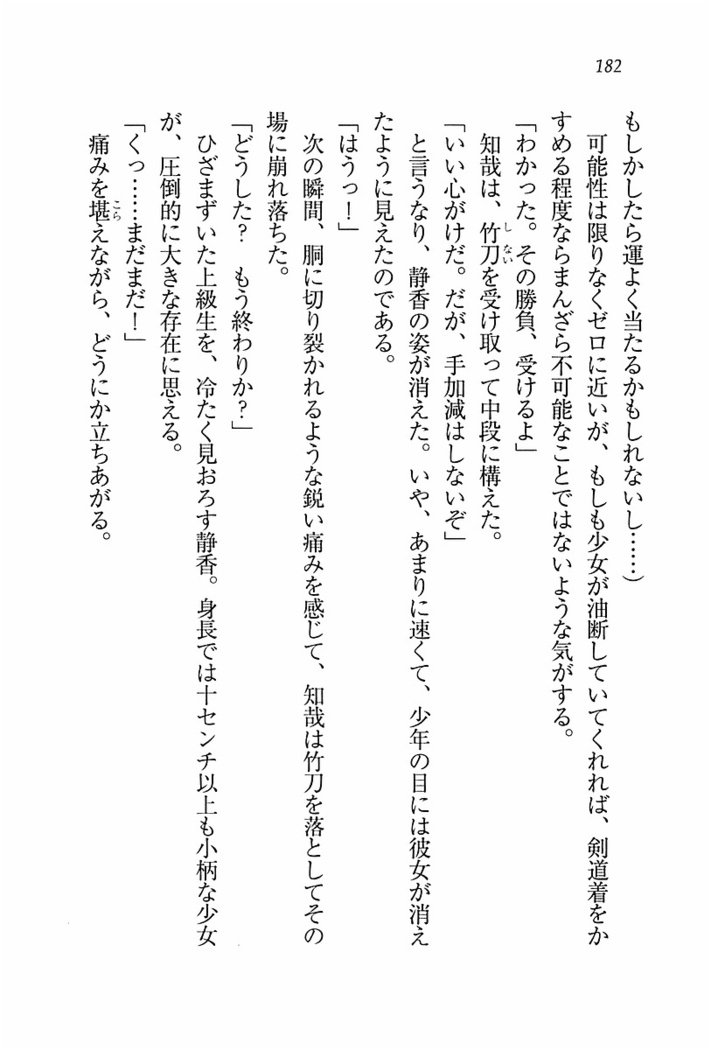 182
もしかしたら運よく当たるかもしれないし……）
可能性は限りなくゼロに近いが、もしも少女が油断していてくれれば、剣道着をか
すめる程度ならまんざら不可能なことではないような気がする。
「わかった。その勝負、受けるよ」
知哉は、竹刀を受け取って中段に構えた。
しない
「いい心がけだ。だが、手加減はしないぞ」
と言うなり、静香の姿が消えた。いや、あまりに速くて、少年の目には彼女が消え
たように見えたのである。
「はうっ！」
次の瞬間、胴に切り裂かれるような鋭い痛みを感じて、知哉は竹刀を落としてその
場に崩れ落ちた。
「どうした？　もう終わりか？」
ひざまずいた上級生を、冷たく見おろす静香。身長では十センチ以上も小柄な少女
が、圧倒的に大きな存在に思える。
「くっ……まだまだ！」
痛みを堪えながら、どうにか立ちあがる。
こら